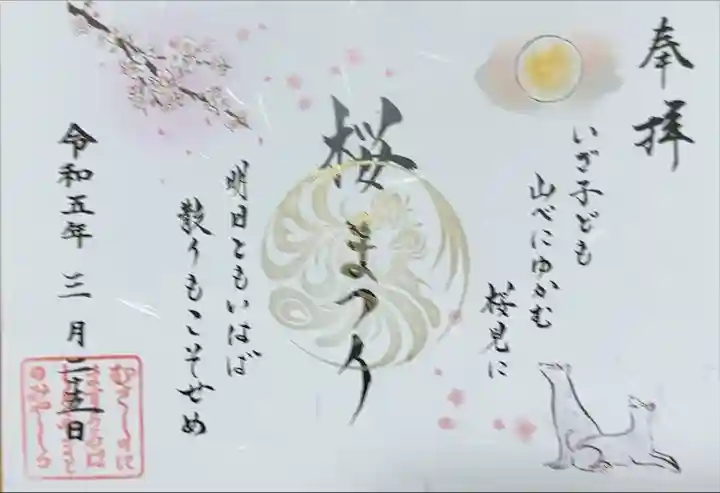 奉拝
いざ子ども
山べにゆかむ
桜見に
桜まつり
明日ともいはば
散りもこそせめ
令和五年 三月二十五日